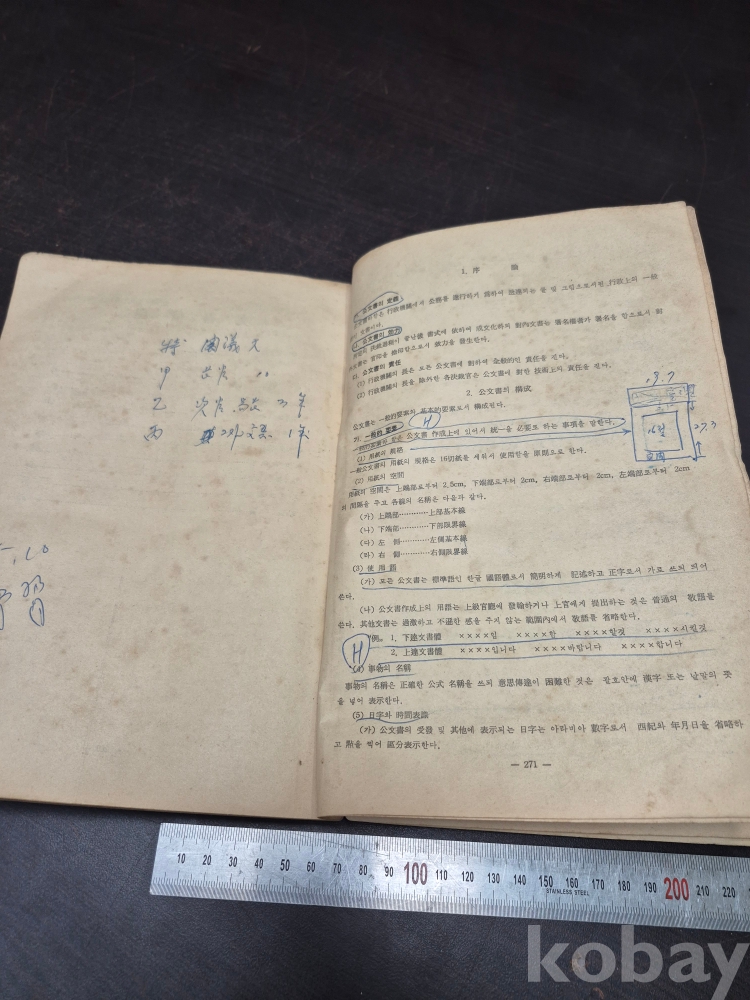 甲
乙
丙
1. 序 論
公文書의 定義
公文書의 效力
다. 公文書의 責任
(1) 行政機關의 長은 모든 公文書에 對하여 全般的인 責任을 진다.
(2) 行政機關의 長을 除外한 各決裁官은 公文書에 對한 技術上의 責任을 진다.
2. 公文書의 構成
公文書는 一般的要素와 基本的要素로서 構成된다.
가. 一般的 要素
H
一般的要素라 함은 公文書 作成上에 있어서 統一을 必要로 하는 事項을 말한다.
(1) 用紙의 規格
一般公文書의 用紙의 規格은 16切紙를 세워서 使用함을 原則으로 한다.
(2) 用紙의 空間
用紙의 空間은 上端部로부터 2.5cm, 下端部로부터 2cm, 右端部로부터 2cm, 左端部로부터 2cm
의 間隔을 주고 各線의 名稱은 다음과 같다.
(가) 上端部…………上部基本線
(나) 下端部…………下部限界線
(다) 左 側…………左側基本線
(라) 右 側…………右側限界線
(3) 使 用 語
(가) 모든 公文書는 標準語인 한글 國語體로서 簡明하게 記述하고 正字로서 가로 쓰되 띄어
쓴다.
(나) 公文書作成上의 用語는 上級官廳에 發翰하거나 上官에게 提出하는 것은 普通의 敬語를
쓴다. 其他文書는 過激하고 不遜한 感을 주지 않는 範圍內에서 敬語를 省略한다.
例. 1, 下達文書體 ××××일 ××××한 ××××할것 ××××시킬것
2, 上達文書體 ××××입니다 ××××바랍니다 ××××합니다
H
(4) 事物의 名稱
事物의 名稱은 正確한 公式 名稱을 쓰되 意思傳達이 困難한 것은 括호안에 漢字 또는 낱말의 뜻
을 넣어 表示한다.
(5) 日字와 時間表示
(가) 公文書의 受發 및 其他에 表示되는 日字는 아라비아 數字로서 西紀와 年月日을 省略하
고 點을 찍어 區分表示한다.
— 271 —
19.7
27.3
10 20 30 40 50 60 70 80 90 100 110 120 130 140 150 160 170 180 190 200 210 220
STAINLESS STEEL
kobay